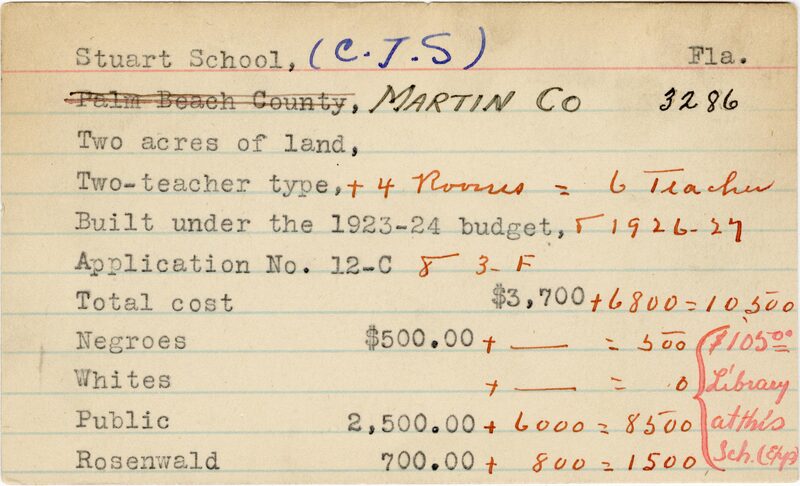 Stuart School, (C.T.S) Fla.
Palm Beach County, MARTIN CO 3286
Two acres of land,
Two-teacher type, + 4 Rooms = 6 Teacher
Built under the 1923-24 budget, & 1926-27
Application No. 12-C & 3-F
Total cost $3,700 + 6800 = 10,500
Negroes $500.00 + — = 500
Whites + — = 0
Public 2,500.00 + 6000 = 8500
Rosenwald 700.00 + 800 = 1500
$105.00
Library
at this
Sch.